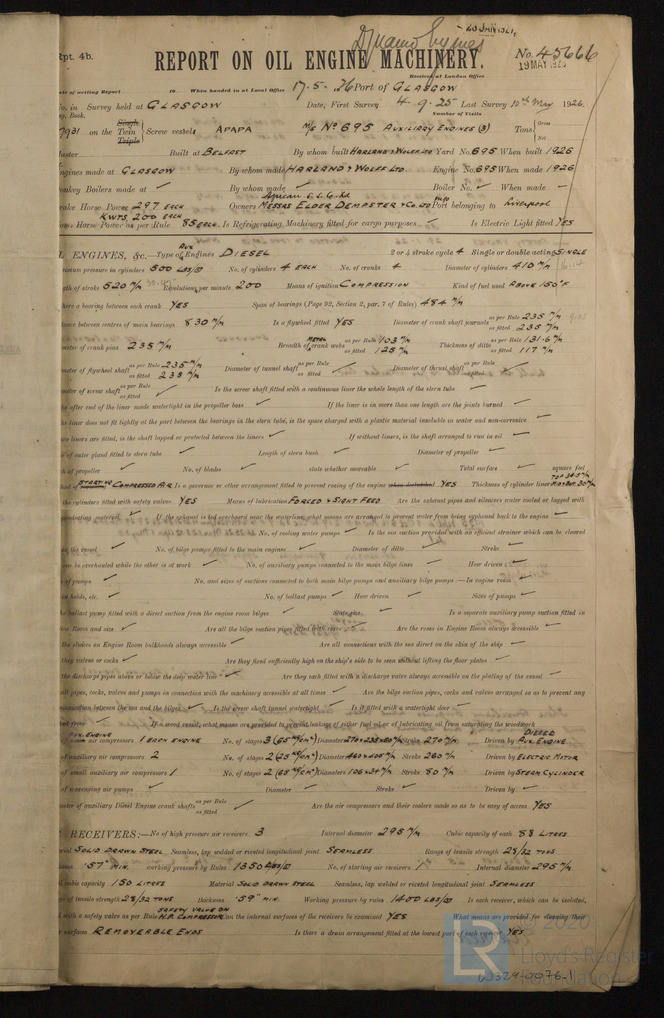 Dynamo Engines
Rpt. 4b.
REPORT ON OIL ENGINE MACHINERY.
No. 45666
19 MAY 1926
Received at London Office
Date of writing Report 19 When handed in at Local Office 17.5.26 Port of GLASGOW
No. in Survey held at GLASGOW Date, First Survey 4.9.25 Last Survey 10th May 1926.
Number of Visits
on the Single Twin Triple Screw vessel APAPA M/S No 695 AUXILIARY ENGINES (3) Tons Gross Net
Master Built at BELFAST By whom built HARLAND & WOLFF LTD Yard No. 695 When built 1926
Engines made at GLASGOW By whom made HARLAND & WOLFF LTD Engine No. 695 When made 1926
Donkey Boilers made at By whom made Boiler No. When made
Brake Horse Power 297 EACH Owners MESSRS ELDER DEMPSTER & CO. LTD Port belonging to Liverpool
KWTS. 200 EACH
Nom. Horse Power as per Rule 85 EACH Is Refrigerating Machinery fitted for cargo purposes Is Electric Light fitted YES
OIL ENGINES, &c.—Type of AUX Engines DIESEL 2 or 4 stroke cycle 4 Single or double acting SINGLE
Maximum pressure in cylinders 500 LBS/□" No. of cylinders 4 EACH No. of cranks 4 Diameter of cylinders 410 M/M
Length of stroke 520 M/M Revolutions per minute 200 Means of ignition COMPRESSION Kind of fuel used ABOVE 150°F
Is there a bearing between each crank YES Span of bearings (Page 92, Section 2, par. 7 of Rules) 484 M/M
Distance between centres of main bearings 830 M/M Is a flywheel fitted YES Diameter of crank shaft journals as per Rule 235 M/M as fitted 235 M/M
Diameter of crank pins 235 M/M Breadth of crank webs as per Rule 103 M/M as fitted 125 M/M Thickness of ditto as per Rule 131.6 M/M as fitted 117 M/M
Diameter of flywheel shaft as per Rule 235 M/M as fitted 235 M/M Diameter of tunnel shaft as per Rule as fitted Diameter of thrust shaft as per Rule as fitted
Diameter of screw shaft as per Rule as fitted Is the screw shaft fitted with a continuous liner the whole length of the stern tube
the after end of the liner made watertight in the propeller boss If the liner is in more than one length are the joints burned
the liner does not fit tightly at the part between the bearings in the stern tube, is the space charged with a plastic material insoluble in water and non-corrosive
two liners are fitted, is the shaft lapped or protected between the liners If without liners, is the shaft arranged to run in oil
of outer gland fitted to stern tube Length of stern bush Diameter of propeller
Pitch of propeller No. of blades state whether moveable Total surface square feet
STARTING COMPRESSED AIR Is a governor or other arrangement fitted to prevent racing of the engine when declutched YES Thickness of cylinder liners
the cylinders fitted with safety valves YES Means of lubrication FORCED & SIGHT FEED Are the exhaust pipes and silencers water cooled or lagged with
conducting material If the exhaust is led overboard near the waterline, what means are arranged to prevent water from being syphoned back to the engine
No. of cooling water pumps Is the sea suction provided with an efficient strainer which can be cleared
the vessel No. of bilge pumps fitted to the main engines Diameter of ditto Stroke
be overhauled while the other is at work No. of auxiliary pumps connected to the main bilge lines How driven
of pumps No. and sizes of suctions connected to both main bilge pumps and auxiliary bilge pumps:—In engine room
holds, etc. No. of ballast pumps How driven Sizes of pumps
the ballast pump fitted with a direct suction from the engine room bilges State size Is a separate auxiliary pump suction fitted in
Engine Room and size Are all the bilge suction pipes fitted with roses Are the roses in Engine Room always accessible
the sluices on Engine Room bulkheads always accessible Are all connections with the sea direct on the skin of the ship
they valves or cocks Are they fixed sufficiently high on the ship's side to be seen without lifting the floor plates
the discharge pipes above or below the deep water line Are they each fitted with a discharge valve always accessible on the plating of the vessel
all pipes, cocks, valves and pumps in connection with the machinery accessible at all times Are the bilge suction pipes, cocks and valves arranged so as to prevent any
communication between the sea and the bilges Is the screw shaft tunnel watertight Is it fitted with a watertight door
If a wood vessel, what means are provided to prevent leakage of either fuel oil or of lubricating oil from saturating the woodwork
air compressors 1 EACH ENGINE No. of stages 3 Diameters Stroke 270 M/M Driven by DIESEL AUX. ENGINE
of auxiliary air compressors 2 No. of stages 2 Diameters Stroke 260 M/M Driven by ELECTRIC MOTOR
of small auxiliary air compressors 1 No. of stages 2 Diameters Stroke 80 M/M Driven by STEAM CYLINDER
of scavenging air pumps Diameter Stroke Driven by
Diameter of auxiliary Diesel Engine crank shafts as per Rule as fitted Are the air compressors and their coolers made so as to be easy of access YES
RECEIVERS:—No of high pressure air receivers 3 Internal diameter 295 M/M Cubic capacity of each 88 LITRES
SOLID DRAWN STEEL Seamless, lap welded or riveted longitudinal joint SEAMLESS Range of tensile strength 28/32 TONS
.57" MIN. working pressure by Rules 1350 LBS/□" No. of starting air receivers 1 Internal diameter 295 M/M
cubic capacity 150 LITRES Material SOLID DRAWN STEEL Seamless, lap welded or riveted longitudinal joint SEAMLESS
of tensile strength 28/32 TONS thickness .59" MIN. Working pressure by rules 1400 LBS/□" Is each receiver, which can be isolated,
SAFETY VALVE ON
with a safety valve as per Rule H.P. COMPRESSOR Can the internal surfaces of the receivers be examined YES What means are provided for cleaning their
surfaces REMOVEABLE ENDS Is there a drain arrangement fitted at the lowest part of each receiver YES
© 2020
Lloyd's Register
Foundation
W329-0076-1